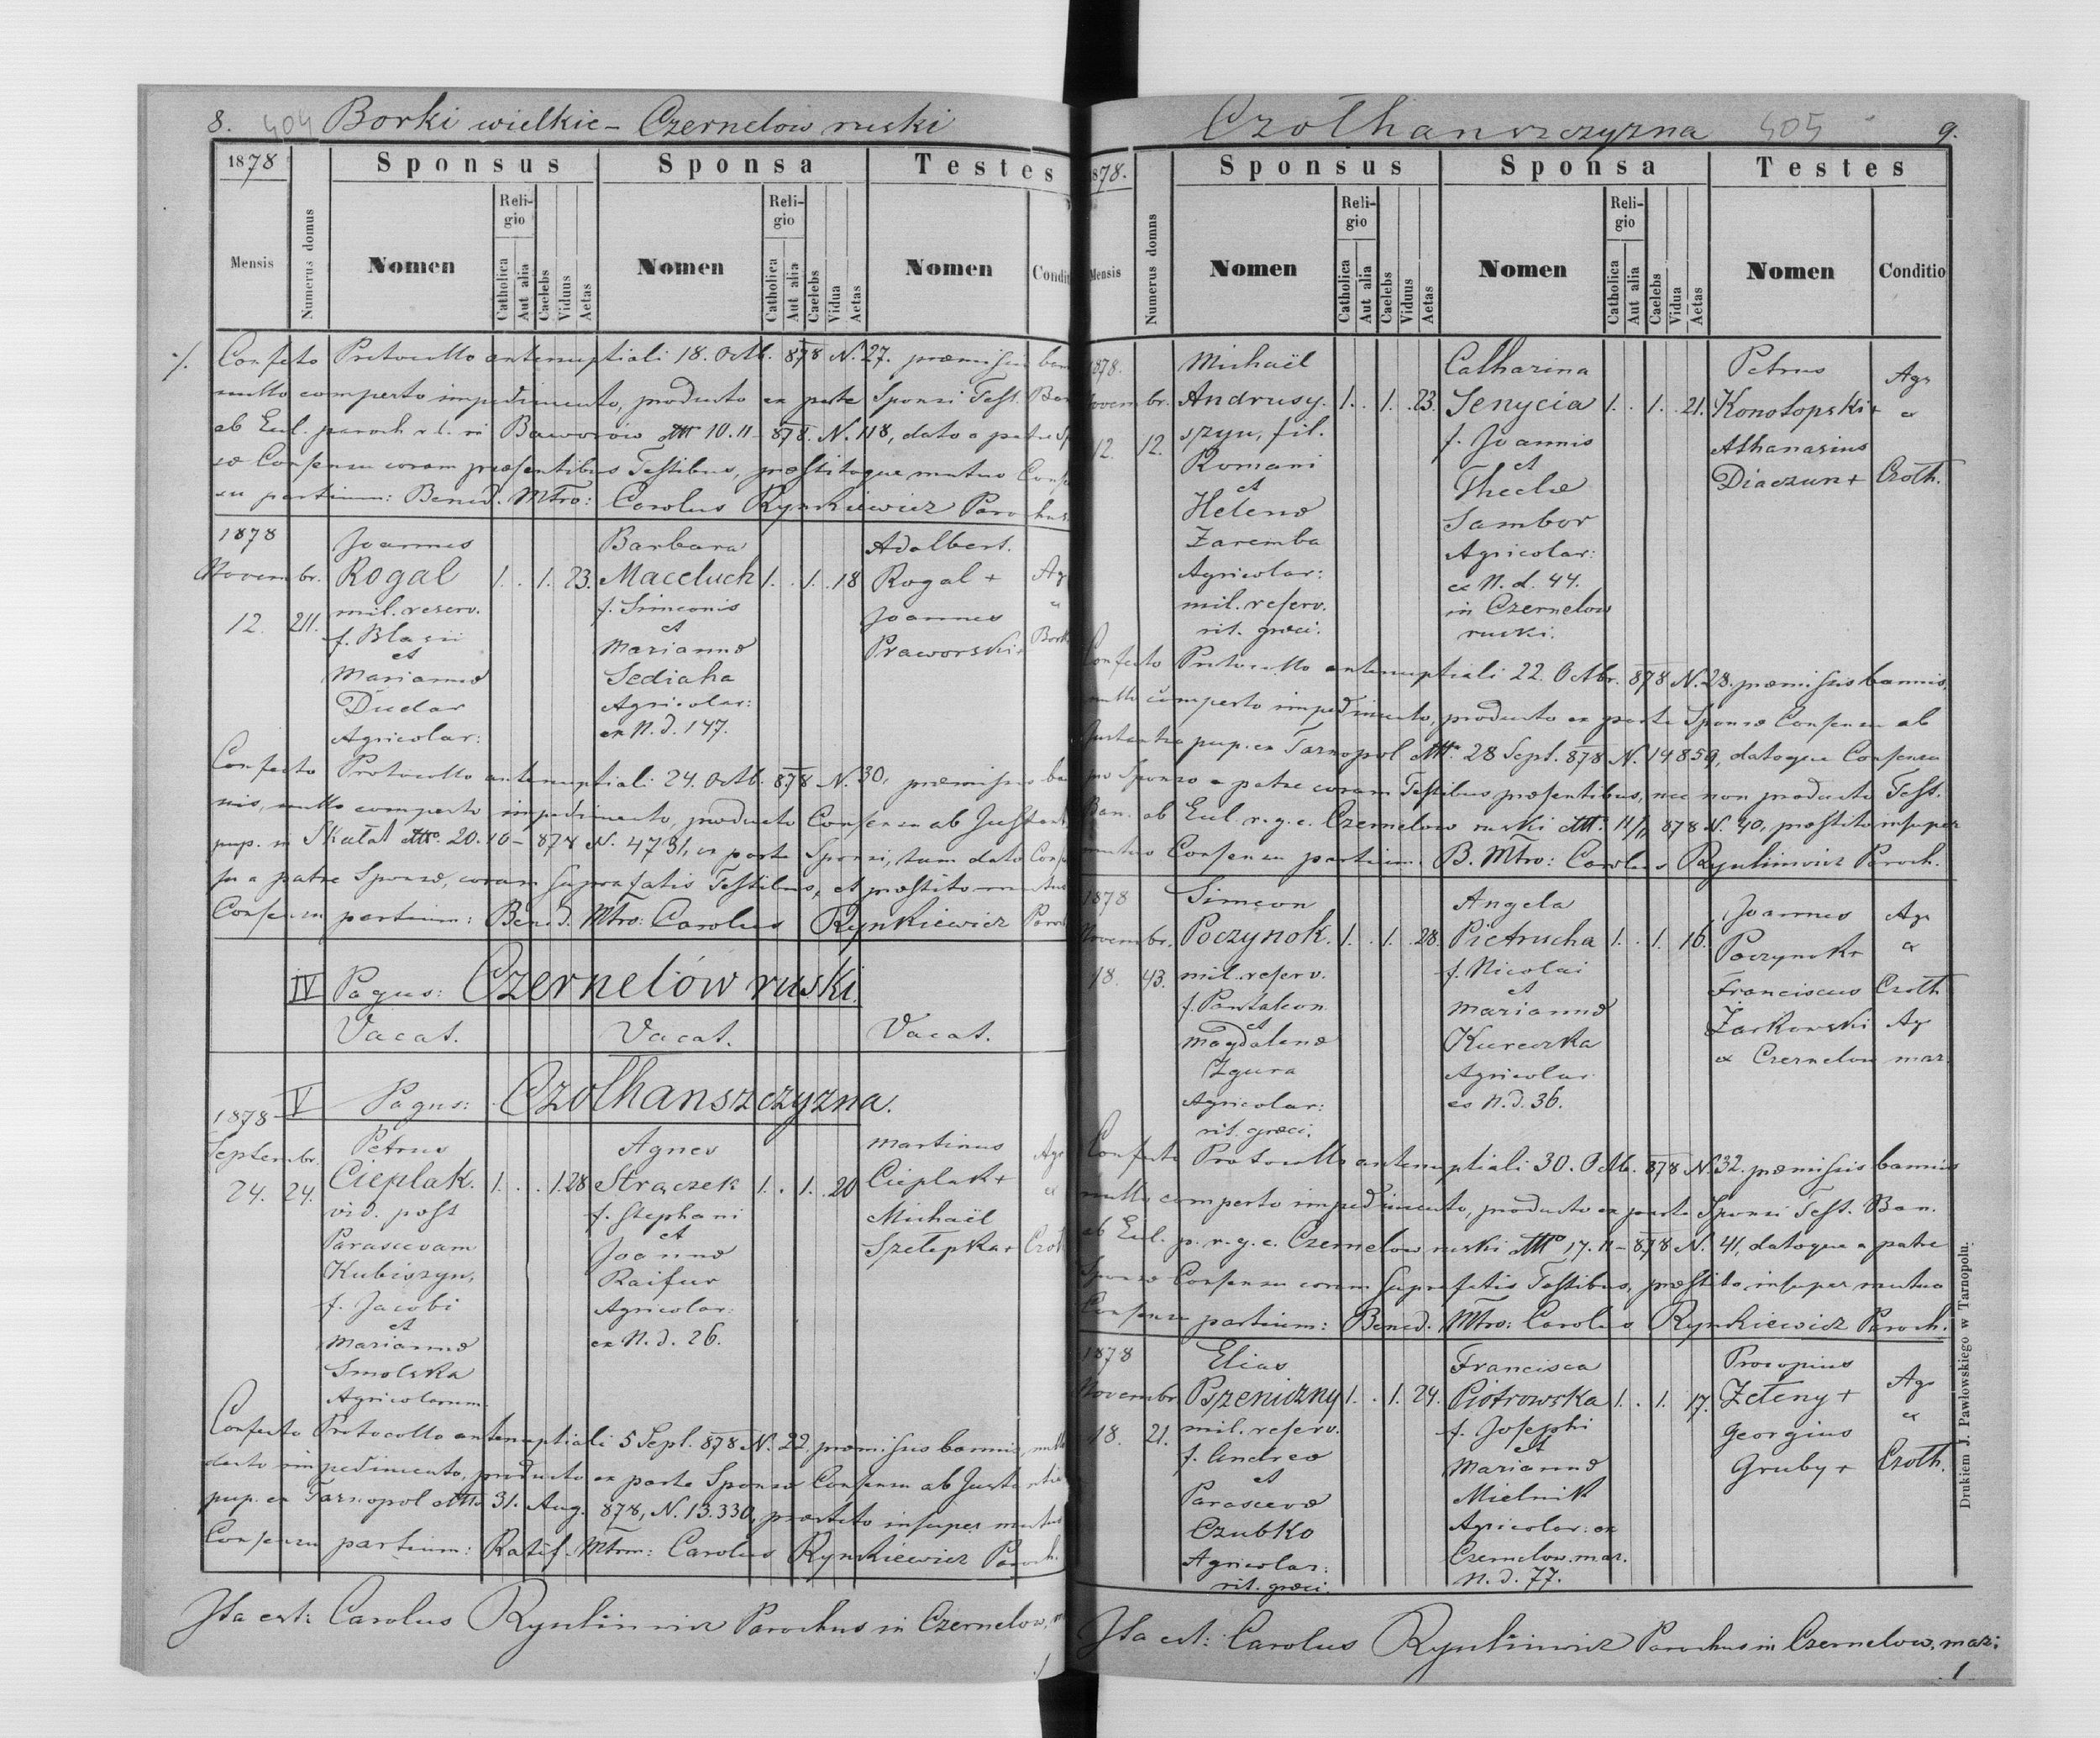 8. 404 Borki wielkie – Czernelow ruski
1878 Sponsus Sponsa Testes
Mensis Numerus domus Nomen Religio Catholica Aut alia Caelebs Viduus Aetas Nomen Religio Catholica Aut alia Caelebs Vidua Aetas Nomen Condit
Confecto Protocollo antenuptiali 18. Octb. 878 N. 27. præmissis
nullo comperto impedimento, producto ex parte Sponsi Test. Ban
ab Eccl. paroch r. l. in Baworów dtto 10.11–878. N. 118, dato a patre
Consensu coram præsentibus Testibus, præstitoque mutuo
partium: Bened. Mtro: Carolus Rynkiewicz Parochus
1878 Joannes Barbara Adalbert.
Novembr. Rogal 1. . 1. 23. Maceluch 1. . 1. 18 Rogal + Ag
12. 211. mil. reserv. f. Simeonis Joannes
f. Blasii et Praworski+ Bork
et Mariannæ
Mariannæ Sediaha
Dudar Agricolar:
Agricolar: ex N. d. 147.
Confecto Protocollo antenuptiali 24. Octb. 878 N. 30, præmissis
nis, nullo comperto impedimento, producto Consensu ab
pup. in Skałat dtto. 20.10–878 N. 4731, ex parte Sponsi, tum dato
su a patre Sponsæ, coram suprafatis Testibus, et præstito mutuo
Consensu partium: Bened. Mtro: Carolus Rynkiewicz Paroch
IV Pagus: Czernelów ruski.
Vacat. Vacat. Vacat.
V Pagus: Czołhanszczyzna.
1878
Septembr. Petrus Agnes Martinus Agr
24. 24. Cieplak. 1. . . 1. 28 Strączek 1. . 1. 20 Cieplak+ ex
vid. post f. Stephani Michaël
Parascevam et Szełepka+ Czoł
Kubiszyn, Joannæ
f. Jacobi Raifur
et Agricolar:
Mariannæ ex N. d. 26.
Smolska
Agricolarum.
Confecto Protocollo antenuptiali 5 Sept. 878 N. 22. præmissis bannis, nullo
impedimento, producto ex parte Sponsæ Consensu ab
pup. ex Tarnopol dtto 31. Aug. 878, N. 13.330, præstito insuper mutuo
Consensu partium: Ratif. Mtrm: Carolus Rynkiewicz Paroch.
Ita est: Carolus Rynkiewicz Parochus in Czernelow,
Czołhanszczyzna 405 9.
1878. Sponsus Sponsa Testes
Mensis Numerus domus Nomen Religio Catholica Aut alia Caelebs Viduus Aetas Nomen Religio Catholica Aut alia Caelebs Vidua Aetas Nomen Conditio
1878. Michaël Catharina Petrus Agr
Novembr. Andrusy- 1. . 1. . 23. Senycia 1. . 1. . 21. Konotopski+ ex
12. 12. szyn, fil. f. Joannis Athanasius
Romani et Diaczun+ Czołh.
et Theclæ
Helenæ Sambor
Zaremba Agricolar:
Agricolar: ex N. d. 44.
mil. reserv. in Czernelow
rit. græci. ruski.
Confecto Protocollo antenuptiali 22. Octbr. 878 N. 28. præmissis bannis,
nullo comperto impedimento, producto ex parte Sponsæ Consensu ab
pup. ex Tarnopol dtto. 28 Sept. 878 N. 14859, datoque Consensu
pro Sponso a patre coram Testibus præsentibus, nec non producto Test.
Ban. ab Eccl. r. g. c. Czernelow ruski dtto. 11/11 878 N. 40, præstito insuper
mutuo Consensu partium. B. Mtro: Carolus Rynkiewicz Paroch.
1878 Simeon Angela Joannes Agr
Novembr. Poczynok. 1. . 1. . 28. Pietrucha 1. . 1. 16. Poczynok+ ex
18. 43. mil. reserv. f. Nicolai Franciscus Czołh
f. Pantaleon et Żarkowski Agr
et Mariannæ ex Czernelow maz.
Magdalenæ Kureczka
Zgura Agricolar
Agricolar: ex N. d. 36.
rit. græci.
Confecto Protocollo antenuptiali 30. Octb. 878 N 32. præmissis bannis
nullo comperto impedimento, producto ex parte Sponsi Test. Ban.
ab Eccl. p. r. g. c. Czernelow ruski dtto 17.11–878 N. 41, datoque a patre
Sponsæ Consensu coram suprafatis Testibus, præstito insuper mutuo
Consensu partium: Bened. Mtro: Carolus Rynkiewicz Paroch.
1878 Elias Francisca Procopius Agr
Novembr. Pszeniczny 1. . 1. 24. Piotrowska 1. . 1. 17. Zełeny+ ex
18. 21. mil. reserv. f. Josephi Georgius
f. Andreæ et Gruby+ Czołh.
et Mariannæ
Parascevæ Mielnik
Czubko Agricolar: ex
Agricolar: Czernelow. maz.
rit. græci. N. d. 77.
Ita est: Carolus Rynkiewicz Parochus in Czernelow, maz:
Drukiem J. Pawłowskiego w Tarnopolu.